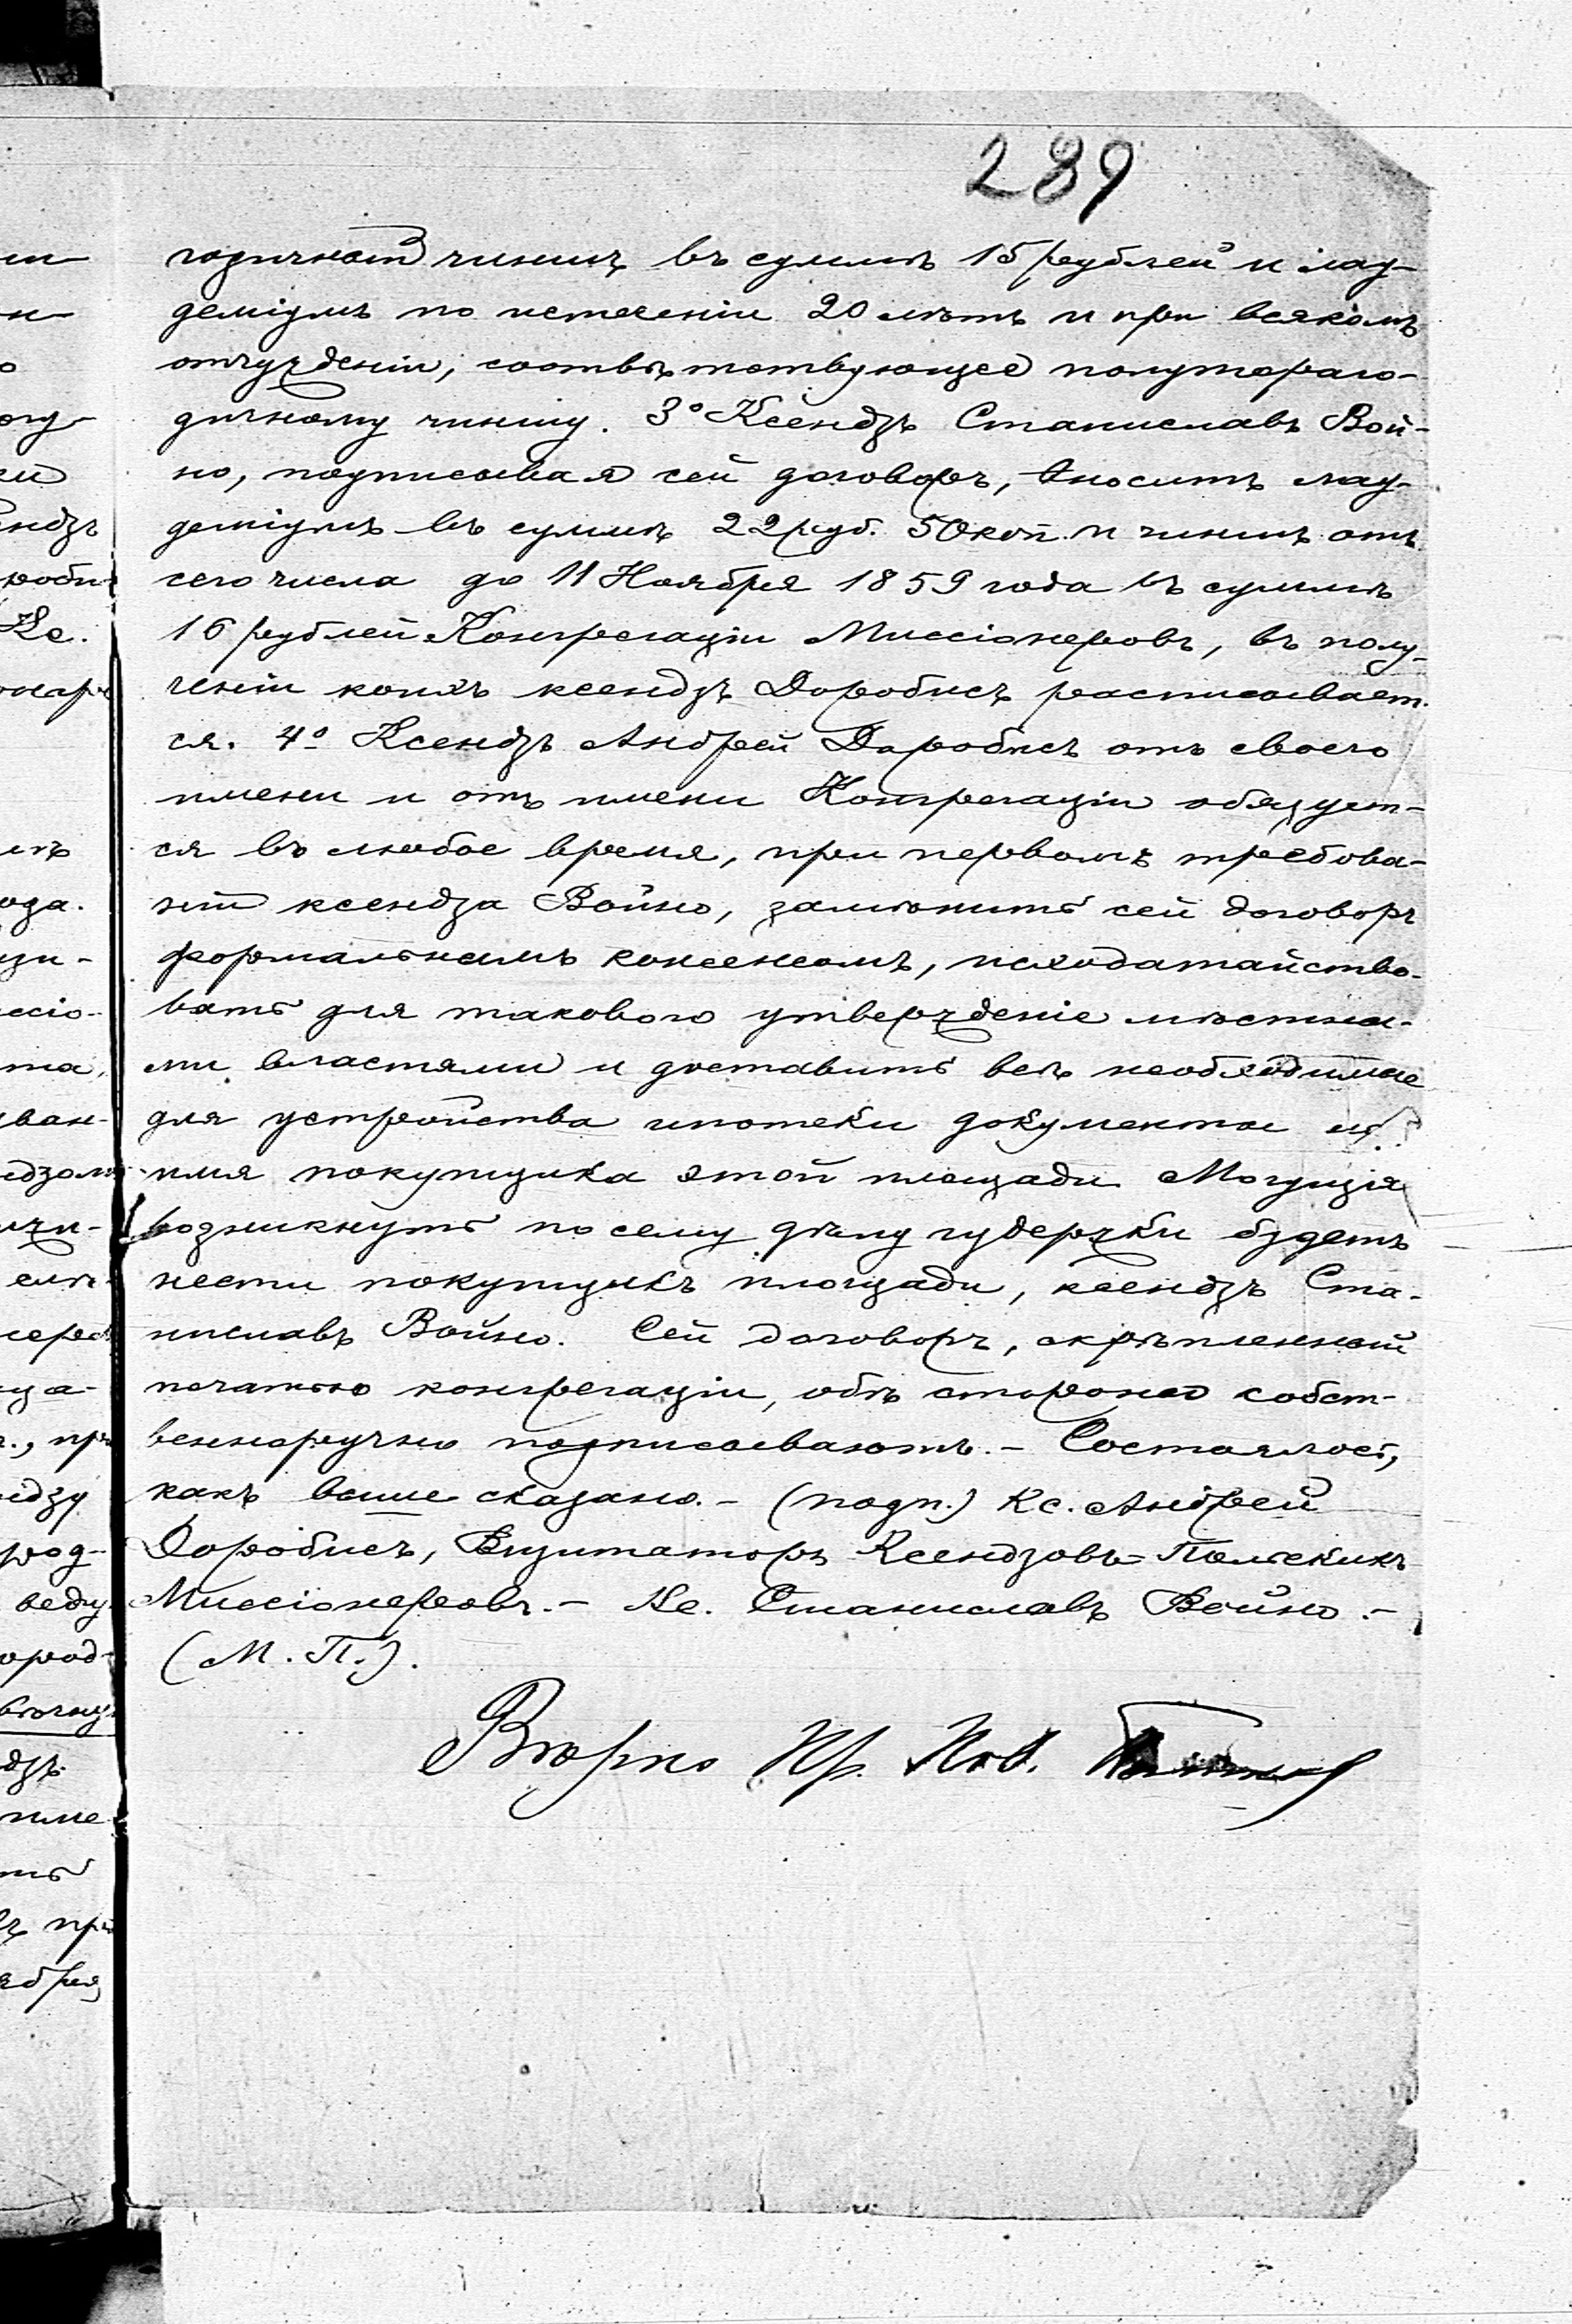 289
годичный чиншъ въ суммѣ 15 рублей и лау-
деміумъ по истеченіи 20 лѣтъ и при всякомъ
отчужденіи, соотвѣтствующее полуторago-
дичному чиншу. 3º Ксендзъ Станиславъ Вой-
но, подписывая сей договоръ, вноситъ лау-
деміумъ въ суммѣ 22 руб. 50 коп. и чиншъ отъ
сего числа до 11 Ноября 1859 года въ суммѣ
16 рублей Конгрегаціи Миссіонеровъ, въ полу-
ченіи коихъ ксендзъ Доробисъ расписывает-
ся. 4º Ксендзъ Андрей Доробисъ отъ своего
имени и отъ имени Конгрегаціи обязует-
ся въ любое время, при первомъ требова-
ніи ксендза Войно, замѣнить сей договоръ
формальнымъ консенсомъ, исходатайство-
вать для такового утвержденіе мѣстны-
ми властями и доставить всѣ необходимые
для устройства ипотеки документы
имя покупщика этой площади. Могущія
возникнуть по сему дѣлу судержки будетъ
нести покупщикъ площади, ксендзъ Ста-
ниславъ Войно. Сей договоръ, скрѣпленный
печатью конгрегаціи, обѣ стороны собст-
венноручно подписываютъ. - Состоялось,
какъ выше сказано. - (подп.) Кс. Андрей
Доробисъ, Визитаторъ Ксендзовъ-Польскихъ
Миссіонеровъ. - Кс. Станиславъ Войно. -
(М. П.).
Вѣрно Пр. Пов.